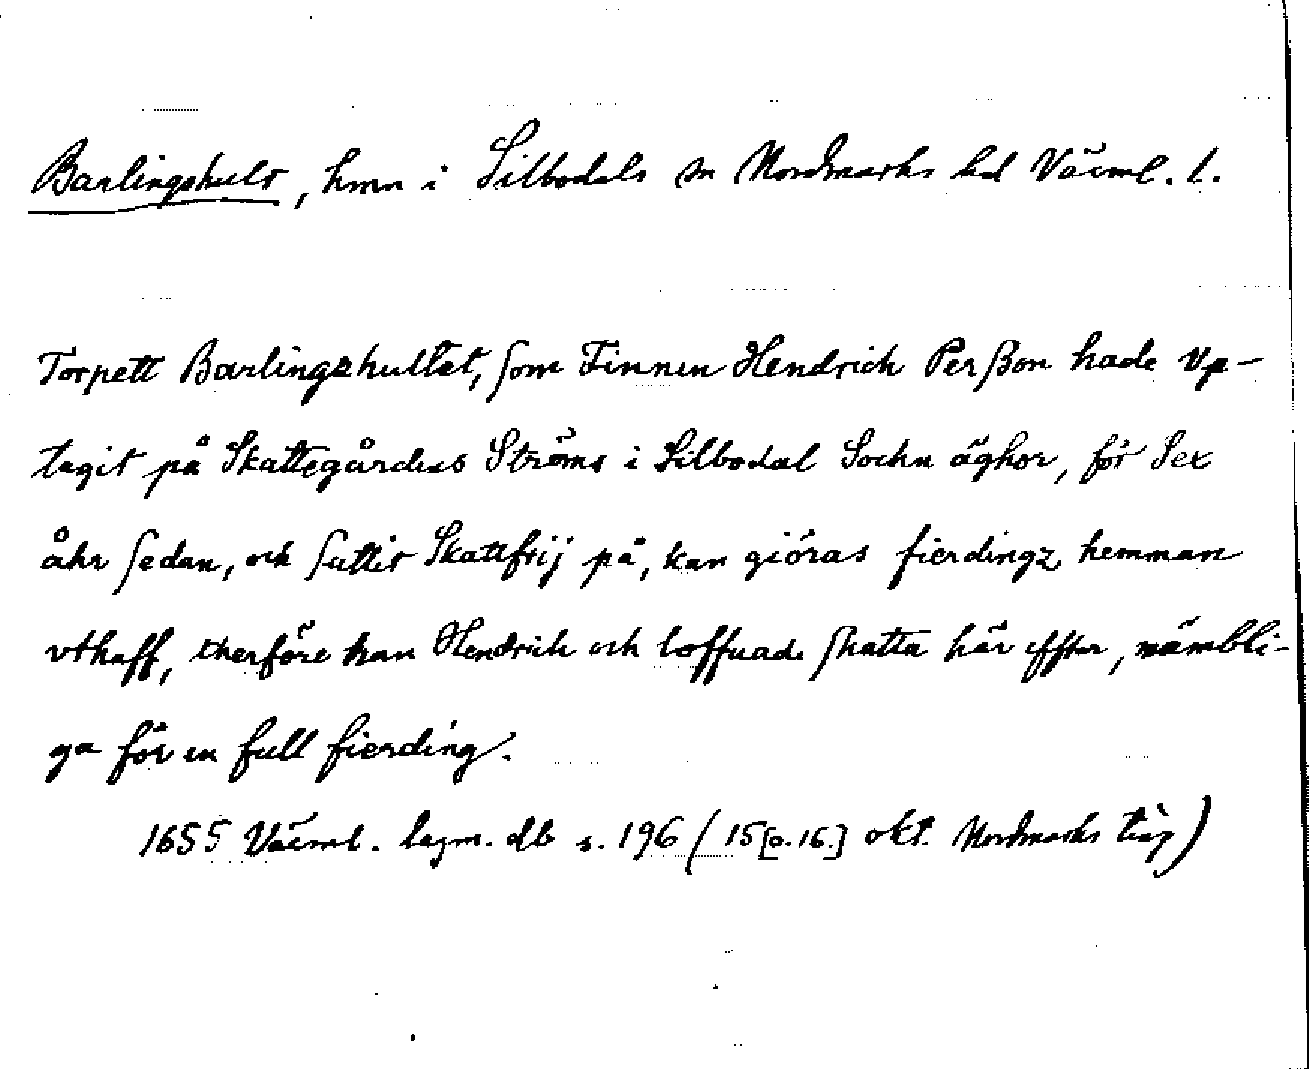 Barlingshult, hmn i Silbodals sn Nordmarks hd Värml. l.
Torpett Barlingzhultet, som Finnen Hendrich Perßon hade vp-
tagit på Skattegårdens Ströms i Silbodal Sochn äghor, för Sex
åhr sedan, och suttit Skattfrij på, kan giöras fierdingz hemman
vthaff, therföre han Hendrich och loffuade skatta här effter, nämbli-
ga för en full fierding.
1655 Värml. lagm. db s. 196 (15 [o. 16.] okt. Nordmarks ting)